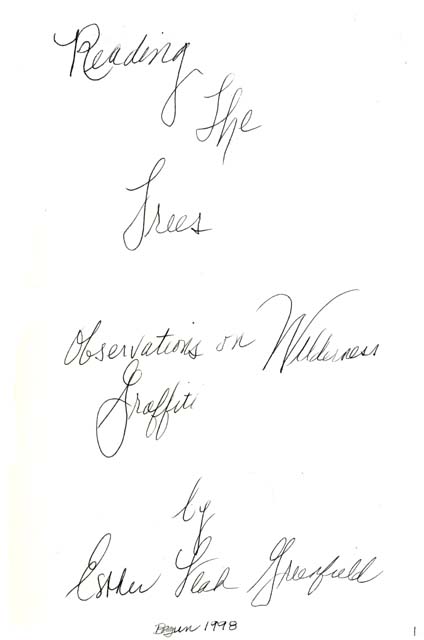 Reading
The
Trees
Observations on Wilderness
Graffiti
by
Esther Leah Greenfield
Begun 1998
1